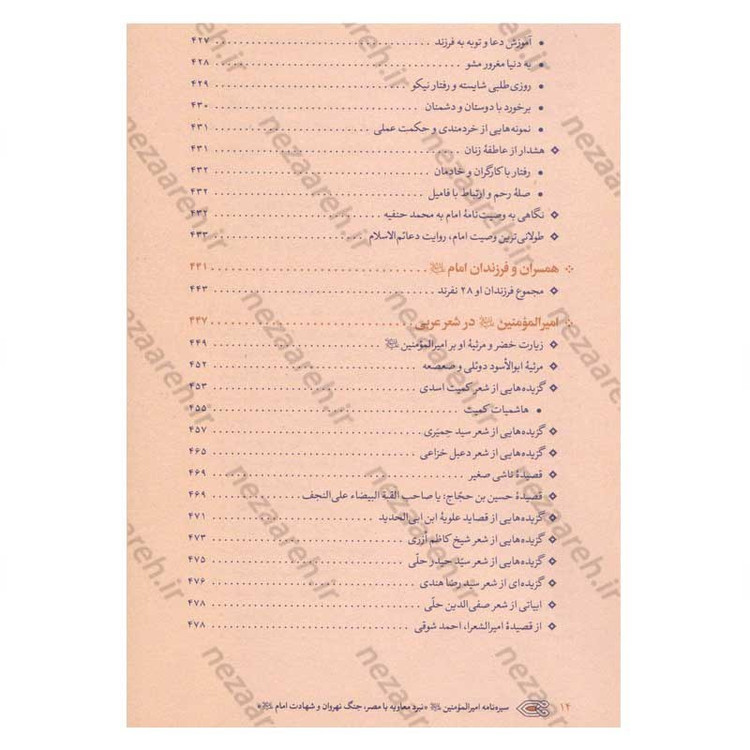 • آموزش دعا و توبه به فرزند ........ ۴۲۷
• به دنیا مغرور مشو ........ ۴۲۸
• روزی‌طلبی شایسته و رفتار نیکو ........ ۴۲۹
• برخورد با دوستان و دشمنان ........ ۴۳۰
• نمونه‌هایی از خردمندی و حکمت عملی ........ ۴۳۱
❖ هشدار از عاطفهٔ زنان ........ ۴۳۱
• رفتار با کارگران و خادمان ........ ۴۳۲
• صلهٔ رحم و ارتباط با فامیل ........ ۴۳۲
❖ نگاهی به وصیت‌نامهٔ امام به محمد حنفیه ........ ۴۳۲
❖ طولانی‌ترین وصیت امام، روایت دعائم‌الاسلام ........ ۴۳۳
همسران و فرزندان امام ........ ۴۴۱
❖ مجموع فرزندان او ۲۸ نفرند ........ ۴۴۳
امیرالمؤمنین در شعر عربی ........ ۴۴۷
❖ زیارت خضر و مرثیهٔ او بر امیرالمؤمنین ........ ۴۴۹
❖ مرثیهٔ ابوالأسود دوئلی و صعصعه ........ ۴۵۲
❖ گزیده‌هایی از شعر کمیت اسدی ........ ۴۵۳
• هاشمیات کمیت ........ ۴۵۵
❖ گزیده‌هایی از شعر سید حِمیَری ........ ۴۵۷
❖ گزیده‌هایی از شعر دعبل خزاعی ........ ۴۶۵
❖ قصیدهٔ ناشی صغیر ........ ۴۶۹
❖ قصیدهٔ حسین بن حجّاج: یا صاحب القبة البیضاء علی‌النجف ........ ۴۶۹
❖ گزیده‌هایی از قصاید علویهٔ ابن ابی‌الحدید ........ ۴۷۱
❖ گزیده‌هایی از شعر شیخ کاظم اُزری ........ ۴۷۳
❖ گزیده‌هایی از شعر سیّد حیدر حلّی ........ ۴۷۵
❖ گزیده‌ای از شعر سید رضا هندی ........ ۴۷۶
❖ ابیاتی از شعر صفی‌الدین حلّی ........ ۴۷۸
❖ از قصیدهٔ امیرالشعرا، احمد شوقی ........ ۴۷۸
۱۴ سیره‌نامه امیرالمؤمنین «نبرد معاویه با مصر، جنگ نهروان و شهادت امام»
nezaareh.ir